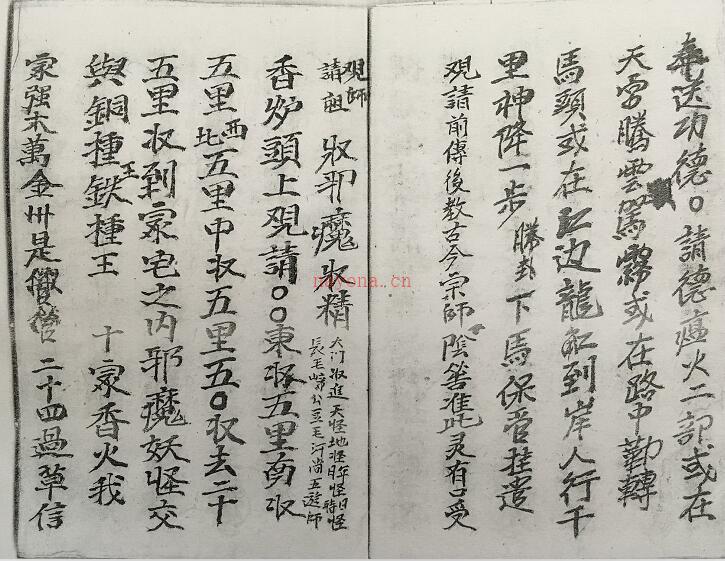 奉送功德〇請德瘟火二部或在
天雲騰雲駕霧或在路中勒轉
馬頭或在江边龍船到岸人行千
里神降一步 勝卦 下馬保管挂遣
覌請前傳後教古今宗師 陰籌準此灵有口受
覌師
請祖 收邪魔收精 大门收進天怪地怪年怪日怪時怪
長毛 公王毛河尚五遊師
香炉頭上覌請〇〇東收五里南收
五里西北五里中收五里一五〇收去二十
五里收到家宅之内邪魔妖怪交
與銅種王鉄種王 十家香火我
家强本萬金州是 管 二十四過草信
nayona.cn